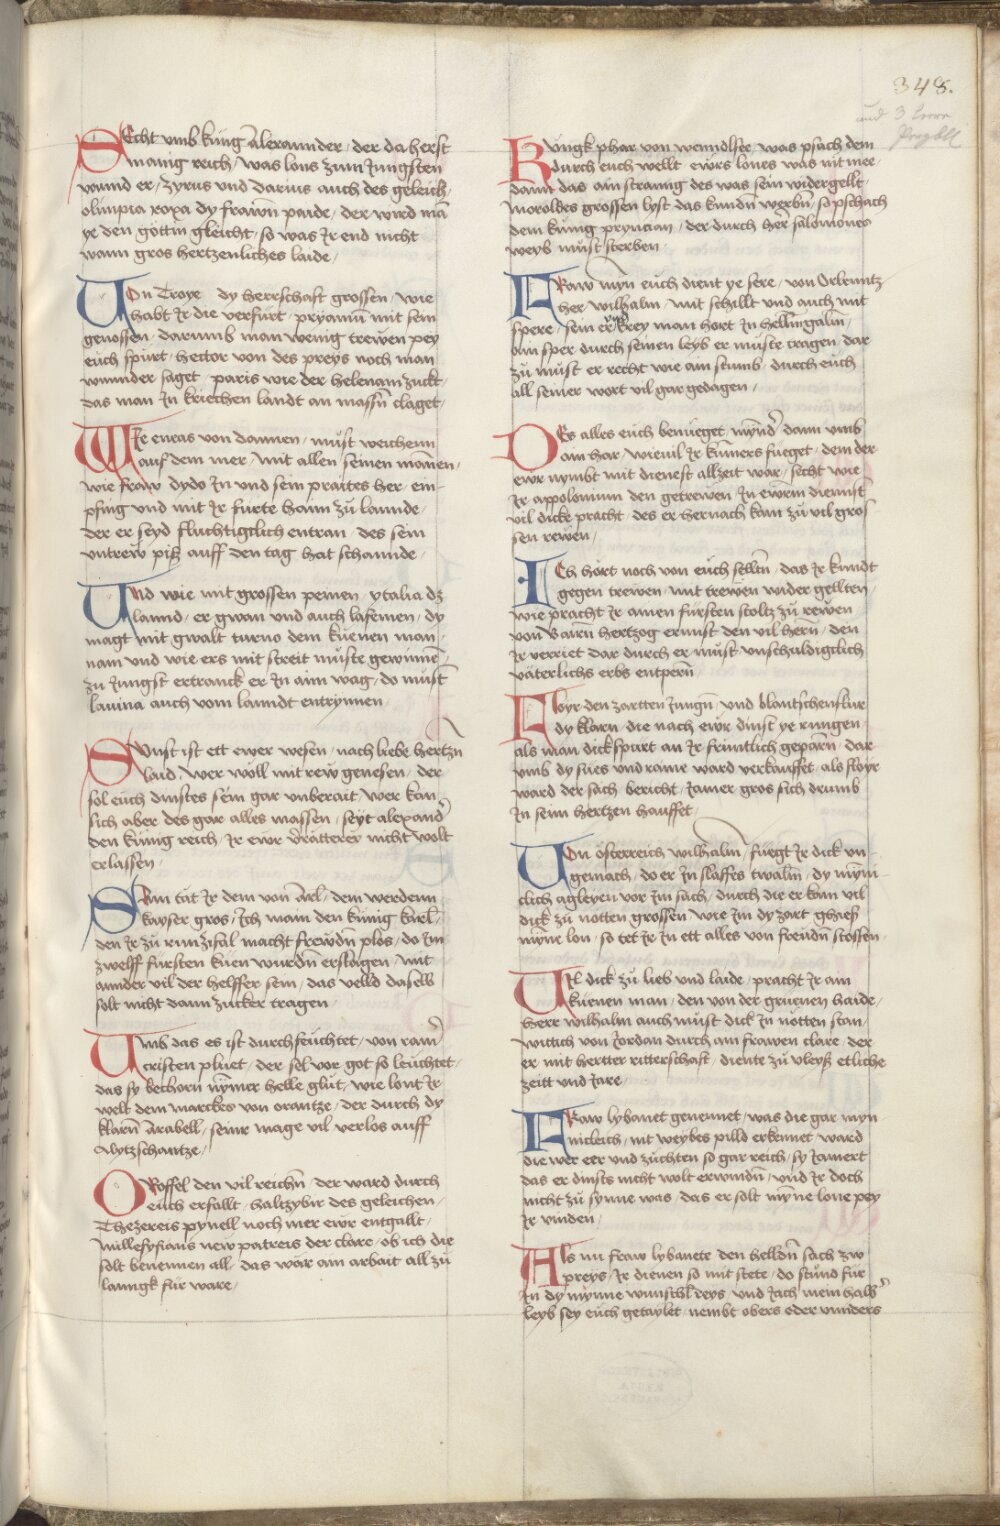 348.
und 3 leere
Pergbll
SEcht vmb kunig Alexannder / der da herst
manig reich / was lons zum Jungsten
wunnd er / zyrus vnd darius auch des geleich /
olimpia roxa dy frawn paide / der wird mā
ye den gottin gleicht / so was Ir end nicht
wann gros hertzenliches laide /
VOn Troye dy herrschafft grossen / wie
habt Ir die verfurt / pryamū mit sein
genossen / darumb man wenig trewen pey
euch spurt / hector von des preys noch man
wunnder saget / paris wie der helenam zuckt /
das man Jn kriechen landt an massn̄ claget /
WIe eneas von dannen / must weichenn
auf dem mer / mit allen seinen mannen /
wie fraw dydo Jn vnd sein praites her / ein-
pfing vnd mit Ir furte haim zu lannde /
der er seyd fluchtigclich entran / des sein
vntrew piß auff den tag hat schannde /
VNd wie mit grossen peinen / ytalia dz
lannd / er gwan vnd auch lafeinen / dy
magt mit gwalt turno dem kuenen man /
nam vnd wie ers mit streit muste gewinnē /
zu Jungst ertranck er Jn aim wag / do must
lauina auch vom lanndt entrynnen /
SVnst ist ett ewer wesen / nach liebe hertzn̄
laid / wer woll mit rew genesen / der
sol euch dinstes sein gar vnberait / wer kan
sich aber des gar alles massen / seyt alexand'
den kunig reich / Ir ewr vrätterey nicht wolt
erlassen /
SAm tät Ir dem von Arl / dem werdenn
kayser gros / Ich main den kunig karl
den Ir zu runzifal macht frewdn̄ plos / do Im
zwelff fursten kuen wurdn̄ erslagen / mit
annder vil der helffer sein / das velld daselb
solt nicht dann zucker tragen /
VMb das es ist durchfeuchtet / von rain'
cristen pluet / der sel vor got so leuchtet /
das sy bechorn nymer helle glut / wie lont Ir
welt dem marckes von orantze / der durch dy
klarn̄ Arabell / seine mage vil verlos auff
Alytzschantze /
OBoffel den vil reichn̄ / der ward durch
euch erfallt / Haltzybir des geleichen /
Thezereis pynell noch mer ewr entgallt /
Millefysians new patreis der clare / ob ich die
solt benennen all / das wär ain arbait all zu
lanngk fur ware /
KVnigk phar von wenndlsee / was psach dem
durch euch wellt / ewrs lones was nit mee /
dann das ain straing des was sein widergellt /
Moroldes grossen lyst das kundn̄ werbn̄ / so pschach
dem kunig pryncian / der durch her salomones
weyb must sterben /
FRaw myn euch dient ye sere / von Orlenntz
her wilhalm / mit schillt vnd auch mit
spere / sein erkrey man hort Jn hellingalm /
ain sper durch seinen leyb er muste tragen / dar
zu must er recht wie ain stumb / durch euch
all seiner wort vil gar gedagen /
DEs alles euch benueget / mynd' dann vmb
ain har / wieuil Ir kumers fueget / dem der
ewr nymbt mit dienest allzeit war / secht wie
Ir appolonium den getrewen Jn ewrm diennst
vil dicke pracht / des er hernach kam zu vil gros
sen rewen /
ICh hort noch von euch selltn̄ / das Ir kundt
gegen trewen / mit trewen wider gellten /
wie pracht Ir ainen fursten stoltz zu rewen
von Bairn hertzog ernnst den vil hern̄ / den
Ir verriet dar durch er must vnschuldigclich
väterlichs erbs entpern̄
FLoyr den zartten Jungn̄ / vnd blantschenflur
dy klarn / die nach ewr dinst ye rungen /
als man dick spurt an Ir frintlich geparn̄ / dar
vmb dy sues vnd raine ward verkauffet / als floyr
ward der sach bericht / Jamer gros sich drumb
Jn seim hertzen hauffet /
VOn österreich wilhalm / fuegt Ir dick vn-
gemach / do er Jn slaffes twalm / dy mynn-
clich agleyen vor Im sach / durch die er kam vil
dick zu notten grossen / wie Im dy zart ghieß
mynne lon / so tet Ir Jn ett alles von freudn̄ stossen /
VIl dick zu lieb vnd laide / pracht Ir ain
kuenen man / den von der gruenen haide /
Herr wilhalm auch must dick Jn nötten stan /
wittich von Jordan durch ain frawen clare / der
er mit hertter ritterschaft / diente zu vleyß etliche
zeitt vnd Jare /
FRaw lybanet genennet / was die gar myn
nicleich / nit weybes pilld erkennet / ward
die wer eer vnd zuchten so gar reich / sy Jamert
das er dinsts nicht wolt erwindn̄ / vnd Ir doch
nicht zu synne was / das er solt myne lone pey
Ir vinden /
ALs nu fraw lybanete / den helldn̄ sach zw
preys / Ir dienen so mit stete / do stund fur
Jn dy mynne wunschlreys / vnd Jach mein halb'
leyb sey euch getaylet / nembt obers oder vnnders